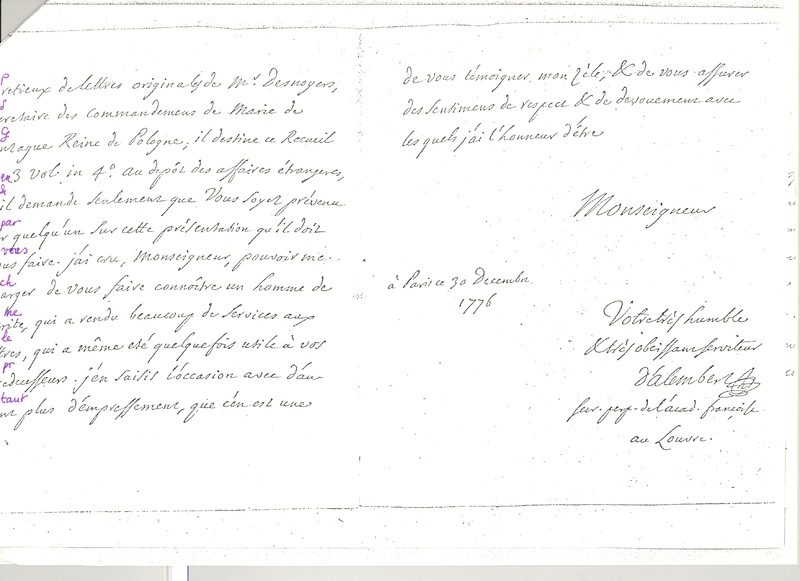 pretieux de lettres originales de Mr. Desnoyers,
secretaire des commandemens de Marie de
gonzague Reine de Pologne; il destine ce Recueil
en 3 vol in 4°. au depôt des affaires étrangeres,
& il demande seulement que Vous soyez prévenu
par quelqu'un sur cette présentation qu'il doit
vous faire. j'ai cru, Monseigneur, pouvoir me
charger de vous faire connoître un homme de
merite, qui a rendu beaucoup de services aux
lettres, qui a même eté quelquefois utile à vos
predecesseurs. j'en saisis l'occasion avec d'au
tant plus d'empressement, que c'en est une
de vous témoigner mon zèle, & de vous assurer
des sentimens de respect & de devouement avec
les quels j'ai l'honneur d'être
Monseigneur
à Paris ce 30 Decembre
1776
Votre très humble
& très obeissant serviteur
D'alembert
secr. perp. de l'acad. françoise
au Louvre.